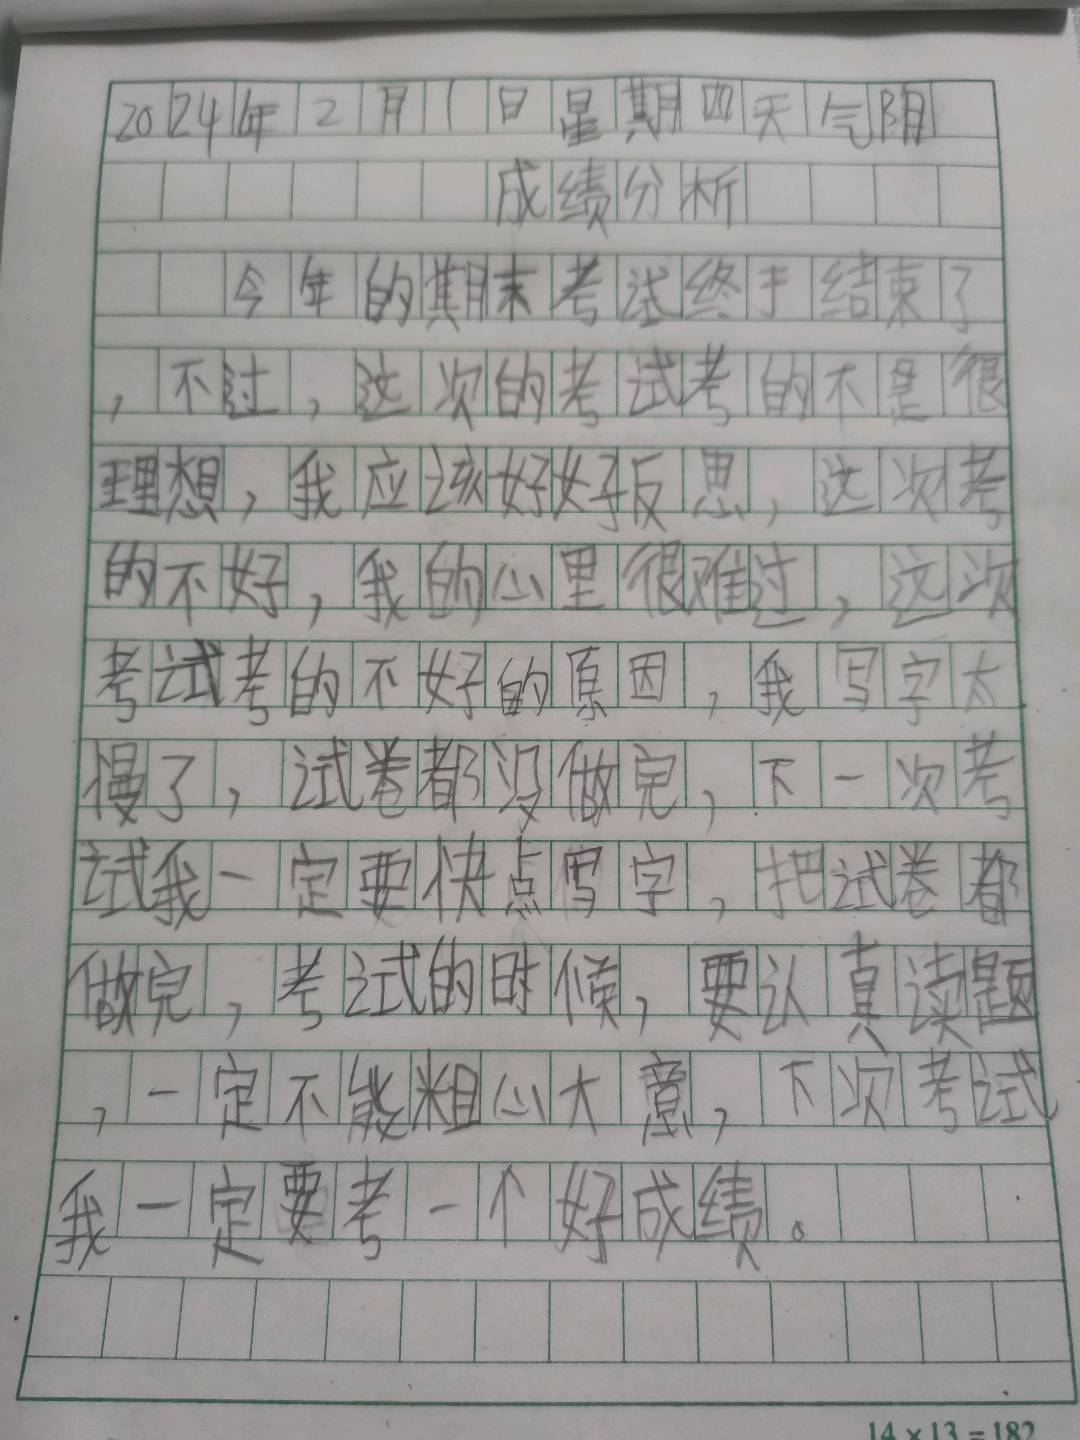 2024年2月1日星期四天气阴
成绩分析
今年的期末考试终于结束了
，不过，这次的考试考的不是很
理想，我应该好好反思，这次考
的不好，我的心里很难过，这次
考试考的不好的原因，我写字太
慢了，试卷都没做完，下一次考
试我一定要快点写字，把试卷都
做完，考试的时候，要认真读题
，一定不能粗心大意，下次考试
我一定要考一个好成绩。
14×13=182